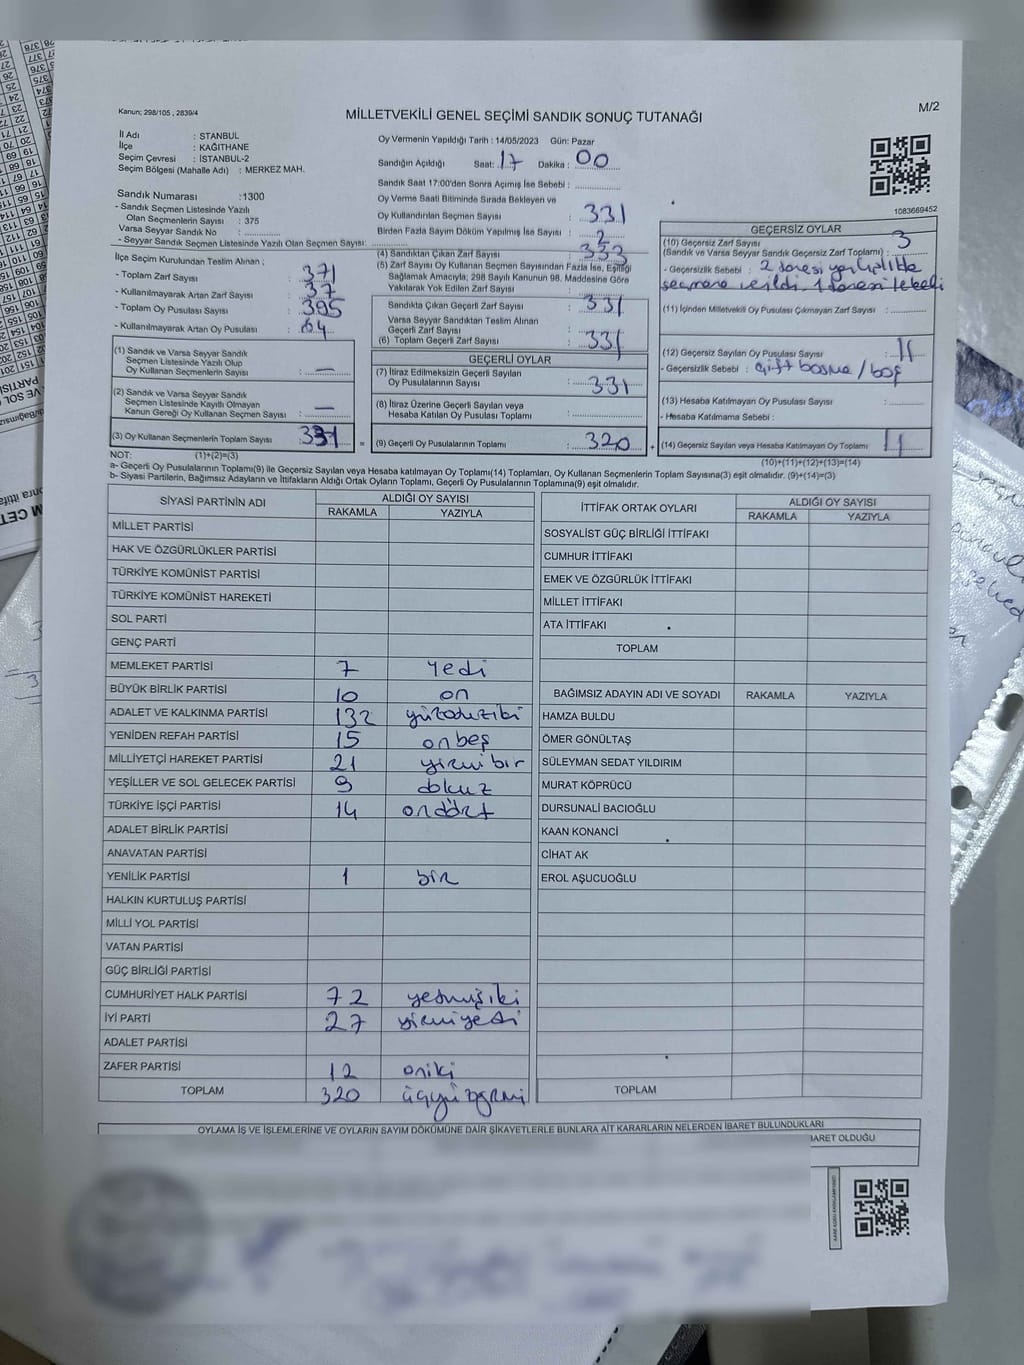 Kanun; 298/105 , 2839/4
MİLLETVEKİLİ GENEL SEÇİMİ SANDIK SONUÇ TUTANAĞI
M/2
İl Adı : STANBUL
İlçe : KAĞITHANE
Seçim Çevresi : İSTANBUL-2
Seçim Bölgesi (Mahalle Adı) : MERKEZ MAH.
Sandık Numarası :1300
- Sandık Seçmen Listesinde Yazılı
Olan Seçmenlerin Sayısı : 375
Varsa Seyyar Sandık No :
- Seyyar Sandık Seçmen Listesinde Yazılı Olan Seçmen Sayısı:
İlçe Seçim Kurulundan Teslim Alınan ;
- Toplam Zarf Sayısı : 371
- Kullanılmayarak Artan Zarf Sayısı : 37
- Toplam Oy Pusulası Sayısı : 395
- Kullanılmayarak Artan Oy Pusulası : 64
(1) Sandık ve Varsa Seyyar Sandık
Seçmen Listesinde Yazılı Olup
Oy Kullanan Seçmenlerin Sayısı : —
(2) Sandık ve Varsa Seyyar Sandık
Seçmen Listesinde Kayıtlı Olmayan
Kanun Gereği Oy Kullanan Seçmen Sayısı : —
(3) Oy Kullanan Seçmenlerin Toplam Sayısı : 331
Oy Vermenin Yapıldığı Tarih : 14/05/2023 Gün: Pazar
Sandığın Açıldığı Saat: 17 Dakika : 00
Sandık Saat 17:00'den Sonra Açılmış İse Sebebi :
Oy Verme Saati Bitiminde Sırada Bekleyen ve
Oy Kullandırılan Seçmen Sayısı : 331
Birden Fazla Sayım Döküm Yapılmış İse Sayısı : 2
(4) Sandıktan Çıkan Zarf Sayısı : 333
(5) Zarf Sayısı Oy Kullanan Seçmen Sayısından Fazla İse, Eşitliği
Sağlamak Amacıyla; 298 Sayılı Kanunun 98. Maddesine Göre
Yakılarak Yok Edilen Zarf Sayısı :
Sandıkta Çıkan Geçerli Zarf Sayısı : 331
Varsa Seyyar Sandıktan Teslim Alınan
Geçerli Zarf Sayısı :
(6) Toplam Geçerli Zarf Sayısı : 331
GEÇERLİ OYLAR
(7) İtiraz Edilmeksizin Geçerli Sayılan
Oy Pusulalarının Sayısı : 331
(8) İtiraz Üzerine Geçerli Sayılan veya
Hesaba Katılan Oy Pusulası Toplamı :
= (9) Geçerli Oy Pusulalarının Toplamı : 320 +
1083669452
GEÇERSİZ OYLAR
(10) Geçersiz Zarf Sayısı : 3
(Sandık ve Varsa Seyyar Sandık Geçersiz Zarf Toplamı)
- Geçersizlik Sebebi : 2 tanesi yanlışlıkla
seçmene verildi. 1 tanesi
(11) İçinden Milletvekili Oy Pusulası Çıkmayan Zarf Sayısı :
(12) Geçersiz Sayılan Oy Pusulası Sayısı : 11
- Geçersizlik Sebebi : çift basma / boş
(13) Hesaba Katılmayan Oy Pusulası Sayısı :
- Hesaba Katılmama Sebebi :
(14) Geçersiz Sayılan veya Hesaba Katılmayan Oy Toplamı : 11
NOT: (1)+(2)=(3) (10)+(11)+(12)+(13)=(14)
a- Geçerli Oy Pusulalarının Toplamı(9) ile Geçersiz Sayılan veya Hesaba katılmayan Oy Toplamı(14) Toplamları, Oy Kullanan Seçmenlerin Toplam Sayısına(3) eşit olmalıdır. (9)+(14)=(3)
b- Siyasi Partilerin, Bağımsız Adayların ve İttifakların Aldığı Ortak Oyların Toplamı, Geçerli Oy Pusulalarının Toplamına(9) eşit olmalıdır.
SİYASİ PARTİNİN ADI ALDIĞI OY SAYISI
RAKAMLA YAZIYLA
MİLLET PARTİSİ
HAK VE ÖZGÜRLÜKLER PARTİSİ
TÜRKİYE KOMÜNİST PARTİSİ
TÜRKİYE KOMÜNİST HAREKETİ
SOL PARTİ
GENÇ PARTİ
MEMLEKET PARTİSİ 7 Yedi
BÜYÜK BİRLİK PARTİSİ 10 on
ADALET VE KALKINMA PARTİSİ 132 yüzotuziki
YENİDEN REFAH PARTİSİ 15 onbeş
MİLLİYETÇİ HAREKET PARTİSİ 21 yirmibir
YEŞİLLER VE SOL GELECEK PARTİSİ 9 dokuz
TÜRKİYE İŞÇİ PARTİSİ 14 ondört
ADALET BİRLİK PARTİSİ
ANAVATAN PARTİSİ
YENİLİK PARTİSİ 1 bir
HALKIN KURTULUŞ PARTİSİ
MİLLİ YOL PARTİSİ
VATAN PARTİSİ
GÜÇ BİRLİĞİ PARTİSİ
CUMHURİYET HALK PARTİSİ 72 yetmişiki
İYİ PARTİ 27 yirmiyedi
ADALET PARTİSİ
ZAFER PARTİSİ 12 oniki
TOPLAM 320 üçyüzyirmi
İTTİFAK ORTAK OYLARI ALDIĞI OY SAYISI
RAKAMLA YAZIYLA
SOSYALİST GÜÇ BİRLİĞİ İTTİFAKI
CUMHUR İTTİFAKI
EMEK VE ÖZGÜRLÜK İTTİFAKI
MİLLET İTTİFAKI
ATA İTTİFAKI
TOPLAM
BAĞIMSIZ ADAYIN ADI VE SOYADI RAKAMLA YAZIYLA
HAMZA BULDU
ÖMER GÖNÜLTAŞ
SÜLEYMAN SEDAT YILDIRIM
MURAT KÖPRÜCÜ
DURSUNALİ BACIOĞLU
KAAN KONANCİ
CİHAT AK
EROL AŞUCUOĞLU
TOPLAM
OYLAMA İŞ VE İŞLEMLERİNE VE OYLARIN SAYIM DÖKÜMÜNE DAİR ŞİKAYETLERLE BUNLARA AİT KARARLARIN NELERDEN İBARET BULUNDUKLARI
BARET OLDUĞU